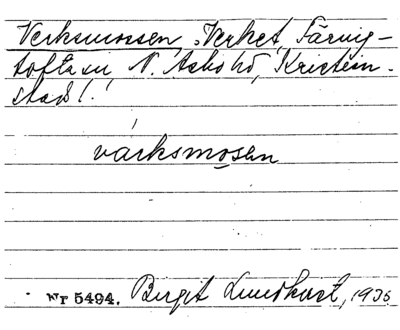 Verksmossen, Verket, Färnig-
toftasn, N. Åsbo hd, Kristian-
stads l.
värksmosen
Nr 5494. Birgit Lundkvist, 1935